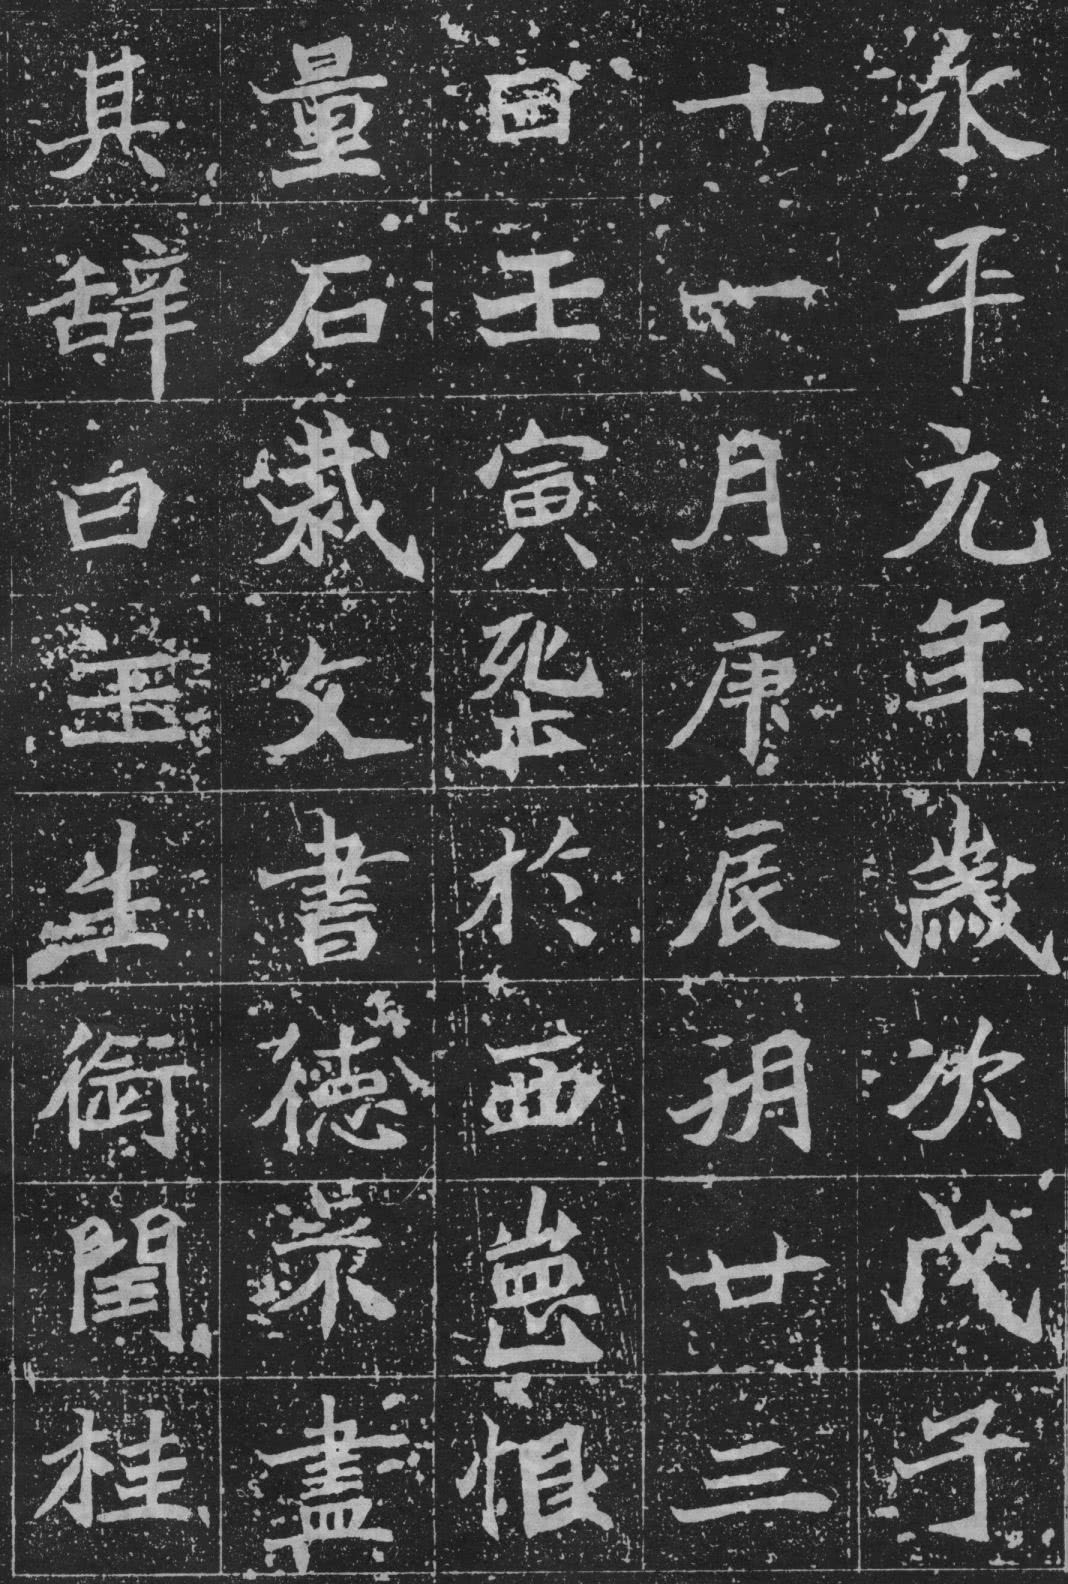 永平元年歲次戊子
十一月庚辰朔廿三
日壬寅塟於西崗恨
量石裁文書德罙盡
其辭曰玉生銜閏桂